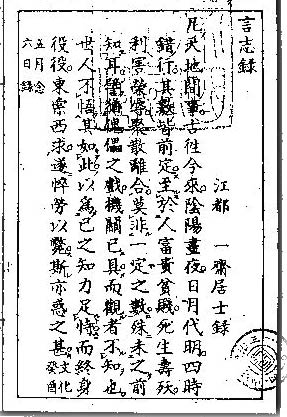 言志録
江都　一齋居士録
凡天地間事古徃今來陰陽晝夜日月代明四時
錯行其數皆前定至於人富貴貧賤死生壽殀
利害榮辱聚散離合莫非一定之數殊未之前
知耳譬猶傀儡之戲機關已具而觀者不知也
世人不悟其如此以爲己之知力足恃而終身
役役東索西求遂悴勞以斃斯亦惑之甚文化癸酉
五月念
六日録